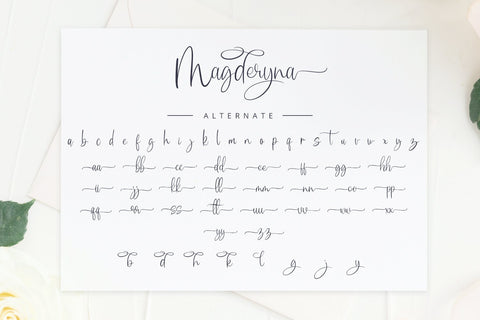 Magderyna
ALTERNATE
a b c d e f g h i j k l m n o p q r s t u v w x y z
aa bb cc dd ee ff gg hh
ii jj kk ll mm nn oo pp
qq rr ss tt uu vv ww xx
yy zz
b d h k l g j y